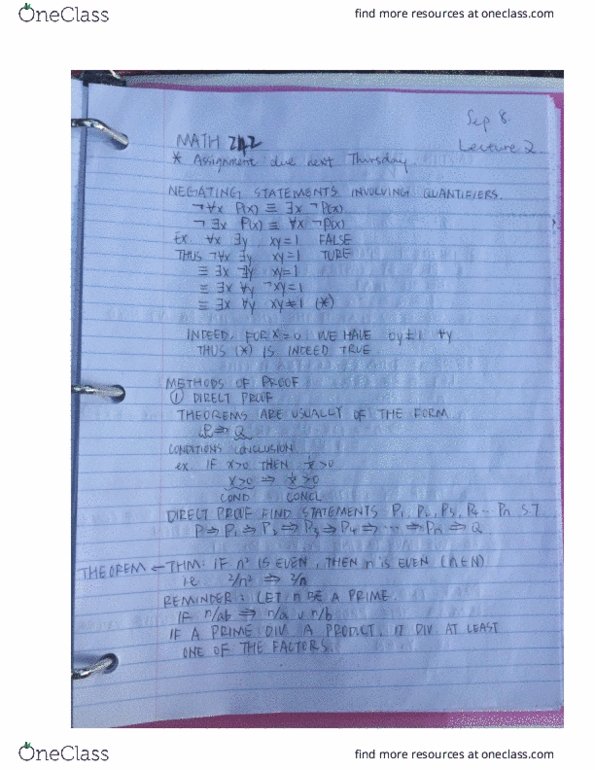 OneClass
find more resources at oneclass.com
Sep 8.
MATH 242
Lecture 2
* Assignment due next Thursday.
NEGATING STATEMENTS INVOLVING QUANTIFIERS.
¬∀x P(x) ≡ ∃x ¬P(x)
¬∃x P(x) ≡ ∀x ¬P(x)
Ex ∀x ∃y xy=1 FALSE
THUS ¬∀x ∃y xy=1 TURE
≡ ∃x ∄y xy=1
≡ ∃x ∀y ¬xy=1
≡ ∃x ∀y xy≠1 (*)
INDEED, FOR x=0 WE HAVE 0y≠1 ∀y
THUS (*) IS INDEED TRUE.
METHODS OF PROOF
① DIRECT PROOF
THEOREMS ARE USUALLY OF THE FORM
P⇒Q
CONDITIONS CONCLUSION
ex. IF x>0 THEN 1/x>0
x>0 ⇒ 1/x>0
COND CONCL
DIRECT PROVE FIND STATEMENTS P1, P2, P3, P4 ~ Pn S.T
P⇒P1⇒P2⇒P3⇒P4⇒⋯⇒Pn⇒Q
THEOREM ← THM: IF n² IS EVEN, THEN n IS EVEN (n∈N)
i.e. 2/n² ⇒ 2/n
REMINDER: LET n BE A PRIME.
IF n/ab ⇒ n/a ∪ n/b
IF A PRIME DIV A PRODUCT, IT DIV AT LEAST
ONE OF THE FACTORS.
OneClass
find more resources at oneclass.com